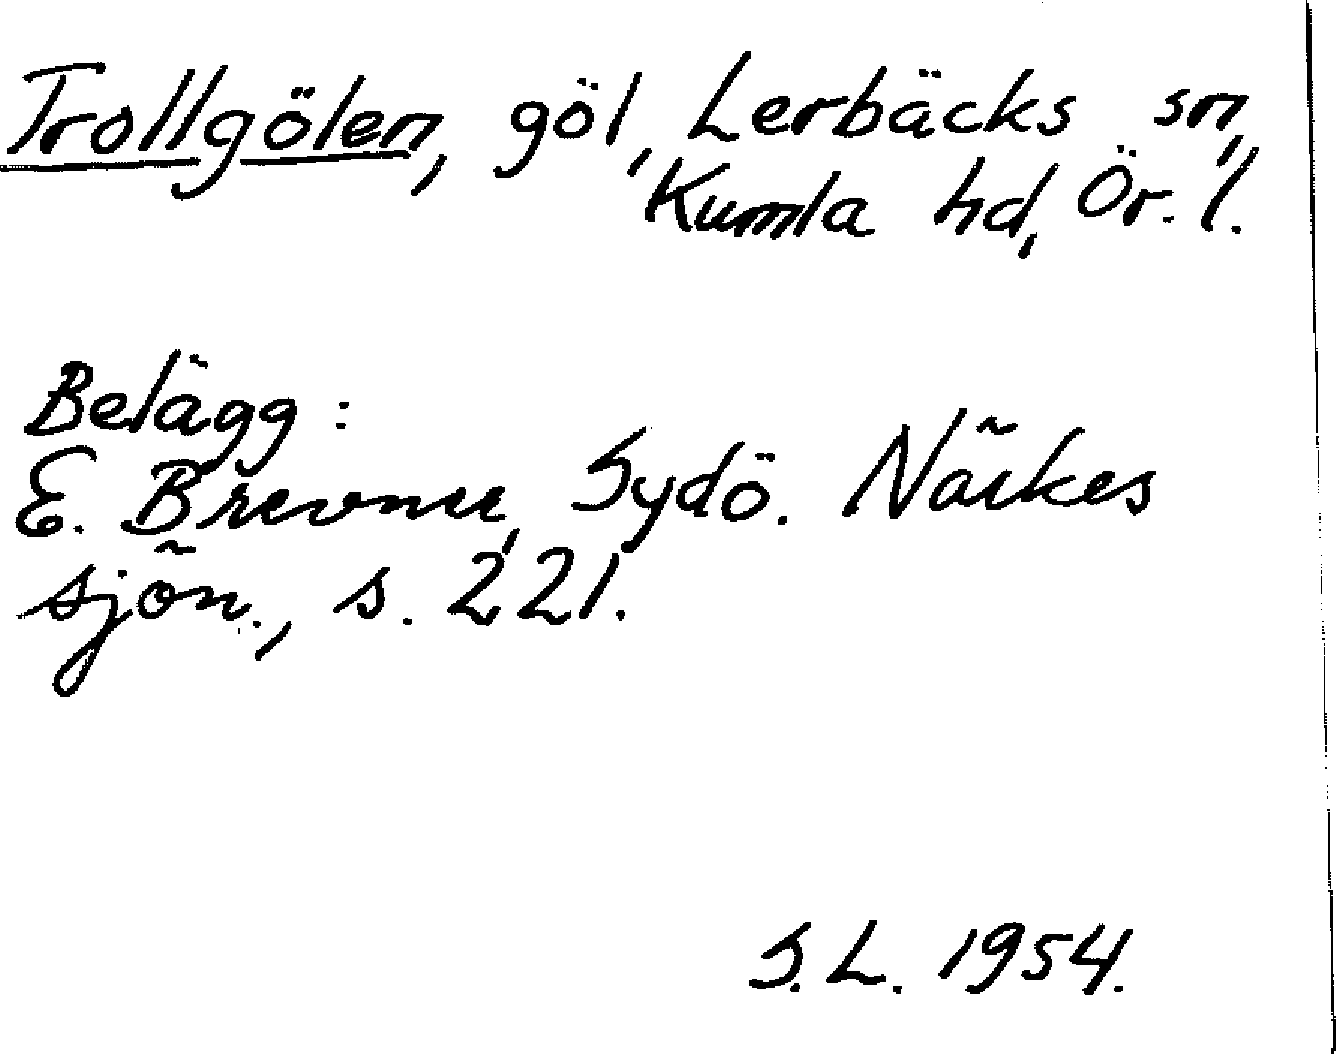 Trollgölen, göl, Lerbäcks sn,
Kumla hd, Ör. l.
Belägg:
E. Brevner, Sydö. Närkes
sjön., s. 221.
S.L. 1954.